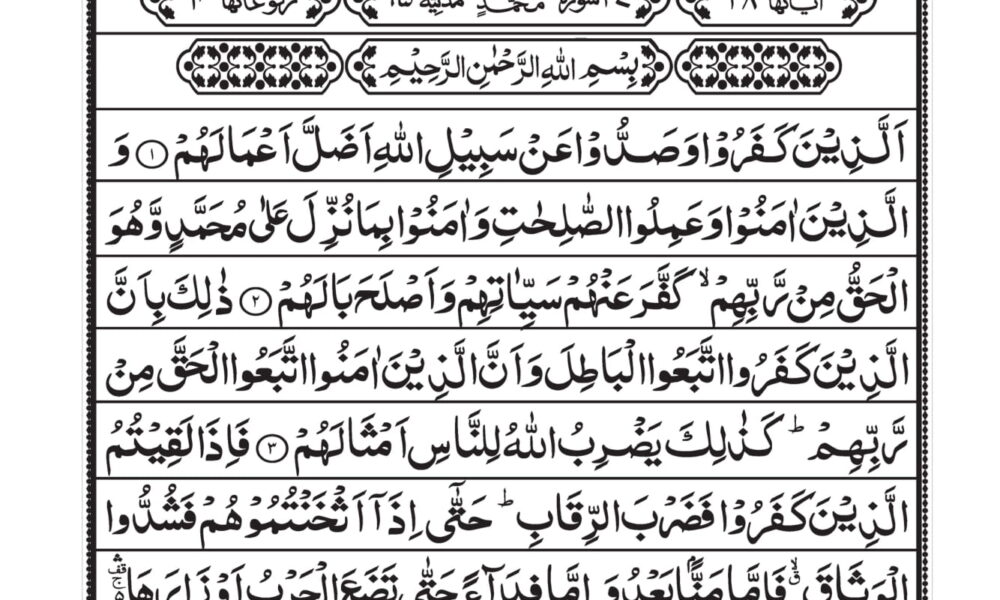 اٰیاتها ۳۸ ۴۷ سورة محمد مدنیة ۹۵ رکوعاتها ۴
بِسْمِ اللهِ الرَّحْمٰنِ الرَّحِیْمِ
اَلَّذِیْنَ كَفَرُوْا وَ صَدُّوْا عَنْ سَبِیْلِ اللهِ اَضَلَّ اَعْمَالَهُمْ ۝۱ وَ
الَّذِیْنَ اٰمَنُوْا وَ عَمِلُوا الصّٰلِحٰتِ وَ اٰمَنُوْا بِمَا نُزِّلَ عَلٰی مُحَمَّدٍ وَّ هُوَ
الْحَقُّ مِنْ رَّبِّهِمْ ۙ كَفَّرَ عَنْهُمْ سَیِّاٰتِهِمْ وَ اَصْلَحَ بَالَهُمْ ۝۲ ذٰلِكَ بِاَنَّ
الَّذِیْنَ كَفَرُوا اتَّبَعُوا الْبَاطِلَ وَ اَنَّ الَّذِیْنَ اٰمَنُوا اتَّبَعُوا الْحَقَّ مِنْ
رَّبِّهِمْ ؕ كَذٰلِكَ یَضْرِبُ اللهُ لِلنَّاسِ اَمْثَالَهُمْ ۝۳ فَاِذَا لَقِیْتُمُ
الَّذِیْنَ كَفَرُوْا فَضَرْبَ الرِّقَابِ ؕ حَتّٰۤی اِذَاۤ اَثْخَنْتُمُوْهُمْ فَشُدُّوا
الْوَثَاقَ ۙ فَاِمَّا مَنًّۢا بَعْدُ وَ اِمَّا فِدَآءً حَتّٰی تَضَعَ الْحَرْبُ اَوْزَارَهَا